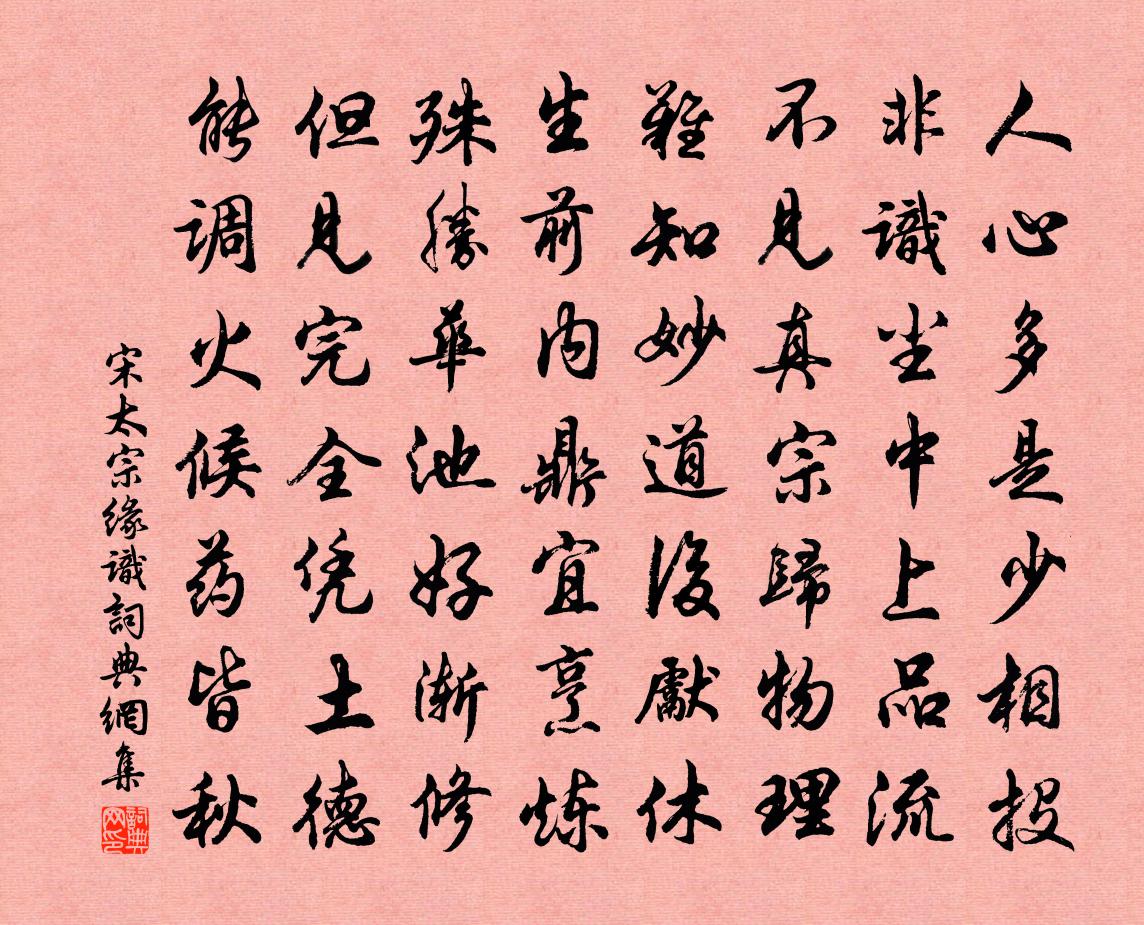 人心多是少相投
非識尘中上品流
不见真宗歸物理
難知妙道後獻休
生前内鼎宜烹炼
殊勝華池好渐修
但见完全凭土德
能调火候药皆秋
宋太宗缘識詞典網集
詞典网印